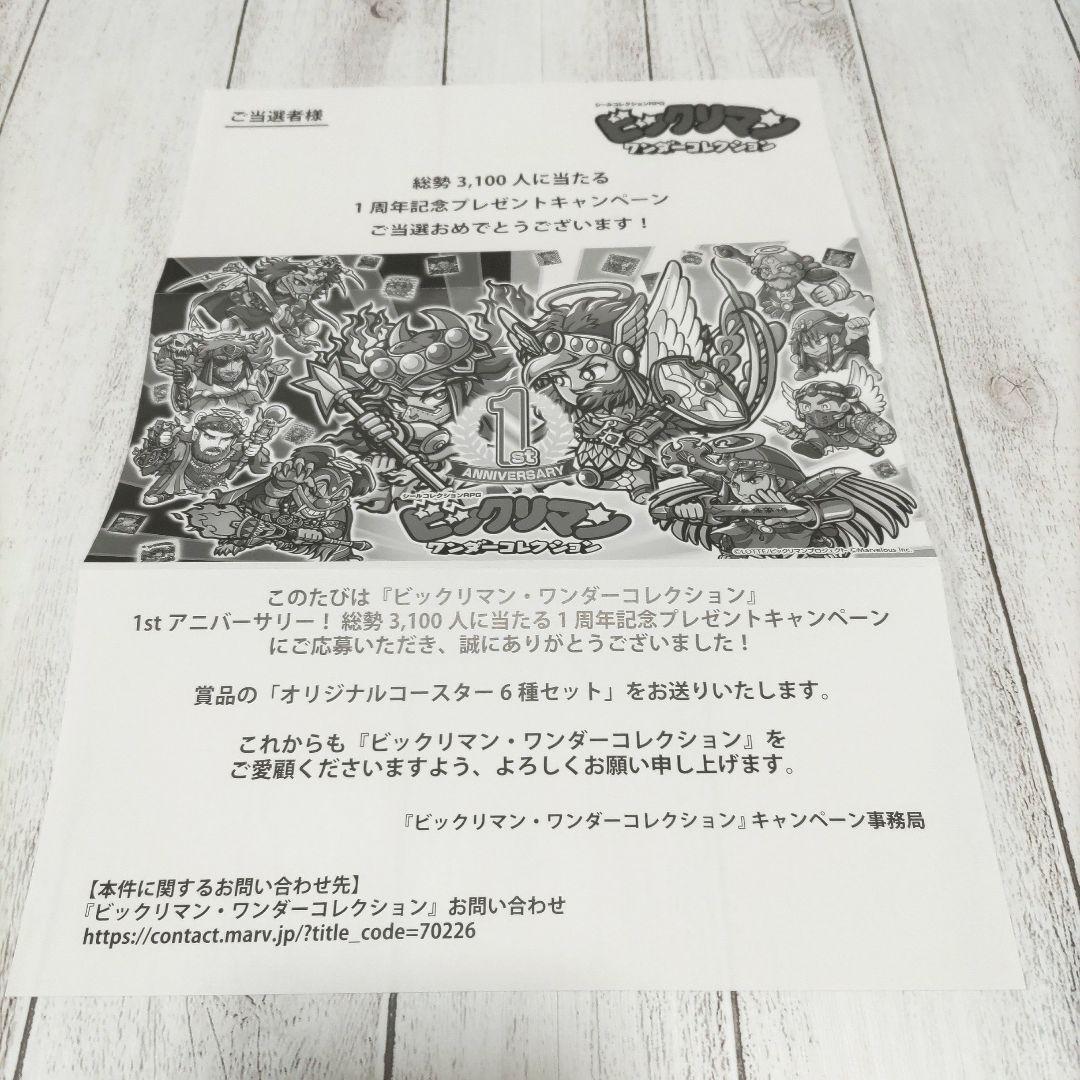 ご当選者様
シールコレクションRPG
ビックリマン
ワンダーコレクション
総勢 3,100 人に当たる
1 周年記念プレゼントキャンペーン
ご当選おめでとうございます！
1st
ANNIVERSARY
シールコレクションRPG
ビックリマン
ワンダーコレクション
©LOTTE/ビックリマンプロジェクト ©Marvelous Inc.
このたびは『ビックリマン・ワンダーコレクション』
1st アニバーサリー！ 総勢 3,100 人に当たる 1 周年記念プレゼントキャンペーン
にご応募いただき、誠にありがとうございました！
賞品の「オリジナルコースター 6 種セット」をお送りいたします。
これからも『ビックリマン・ワンダーコレクション』を
ご愛顧くださいますよう、よろしくお願い申し上げます。
『ビックリマン・ワンダーコレクション』キャンペーン事務局
【本件に関するお問い合わせ先】
『ビックリマン・ワンダーコレクション』お問い合わせ
https://contact.marv.jp/?title_code=70226